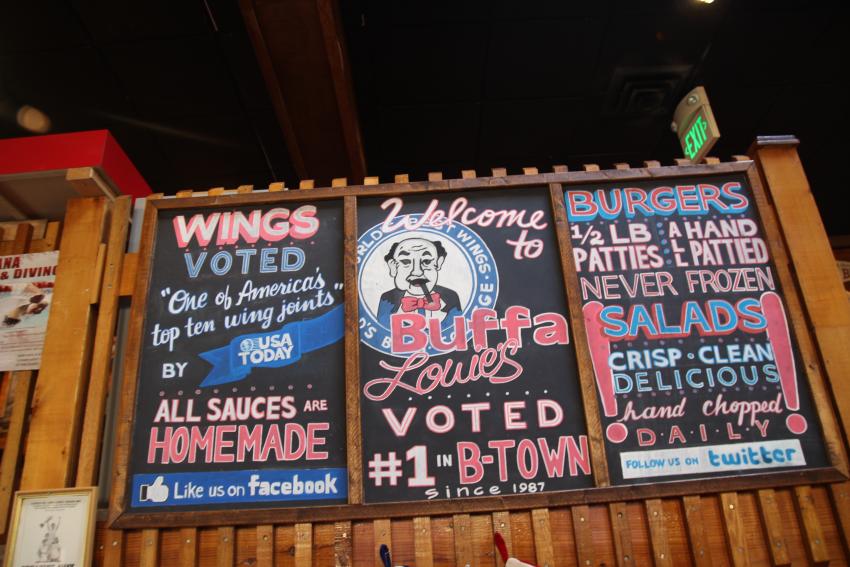 WINGS
VOTED
"One of America's
top ten wing joints"
BY USA
TODAY
ALL SAUCES ARE
HOMEMADE
Like us on facebook
Welcome
to
WINGS
Buffa
Louie's
VOTED
#1 IN B-TOWN
since 1987
BURGERS
1/2 LB
PATTIES
ALL HAND
PATTIED
NEVER FROZEN
SALADS
CRISP · CLEAN
DELICIOUS
hand chopped
DAILY
FOLLOW US ON twitter
EXIT
& DINING